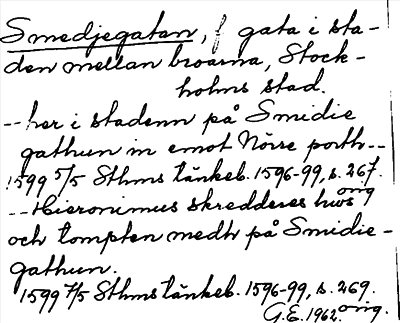 Smedjegatan, f gata i sta-
den mellan broarna, Stock-
holms stad.
-- her i stadenn på Smidie
gathun in emot Nörre porth--
1599 5/5 Sthms tänkeb. 1596-99, s. 267.
orig
-- Hieronimus skredderes hws
och tompten medh på Smidie-
gathun.
1599 7/5 Sthms tänkeb. 1596-99, s. 269.
G.E. 1962. orig.